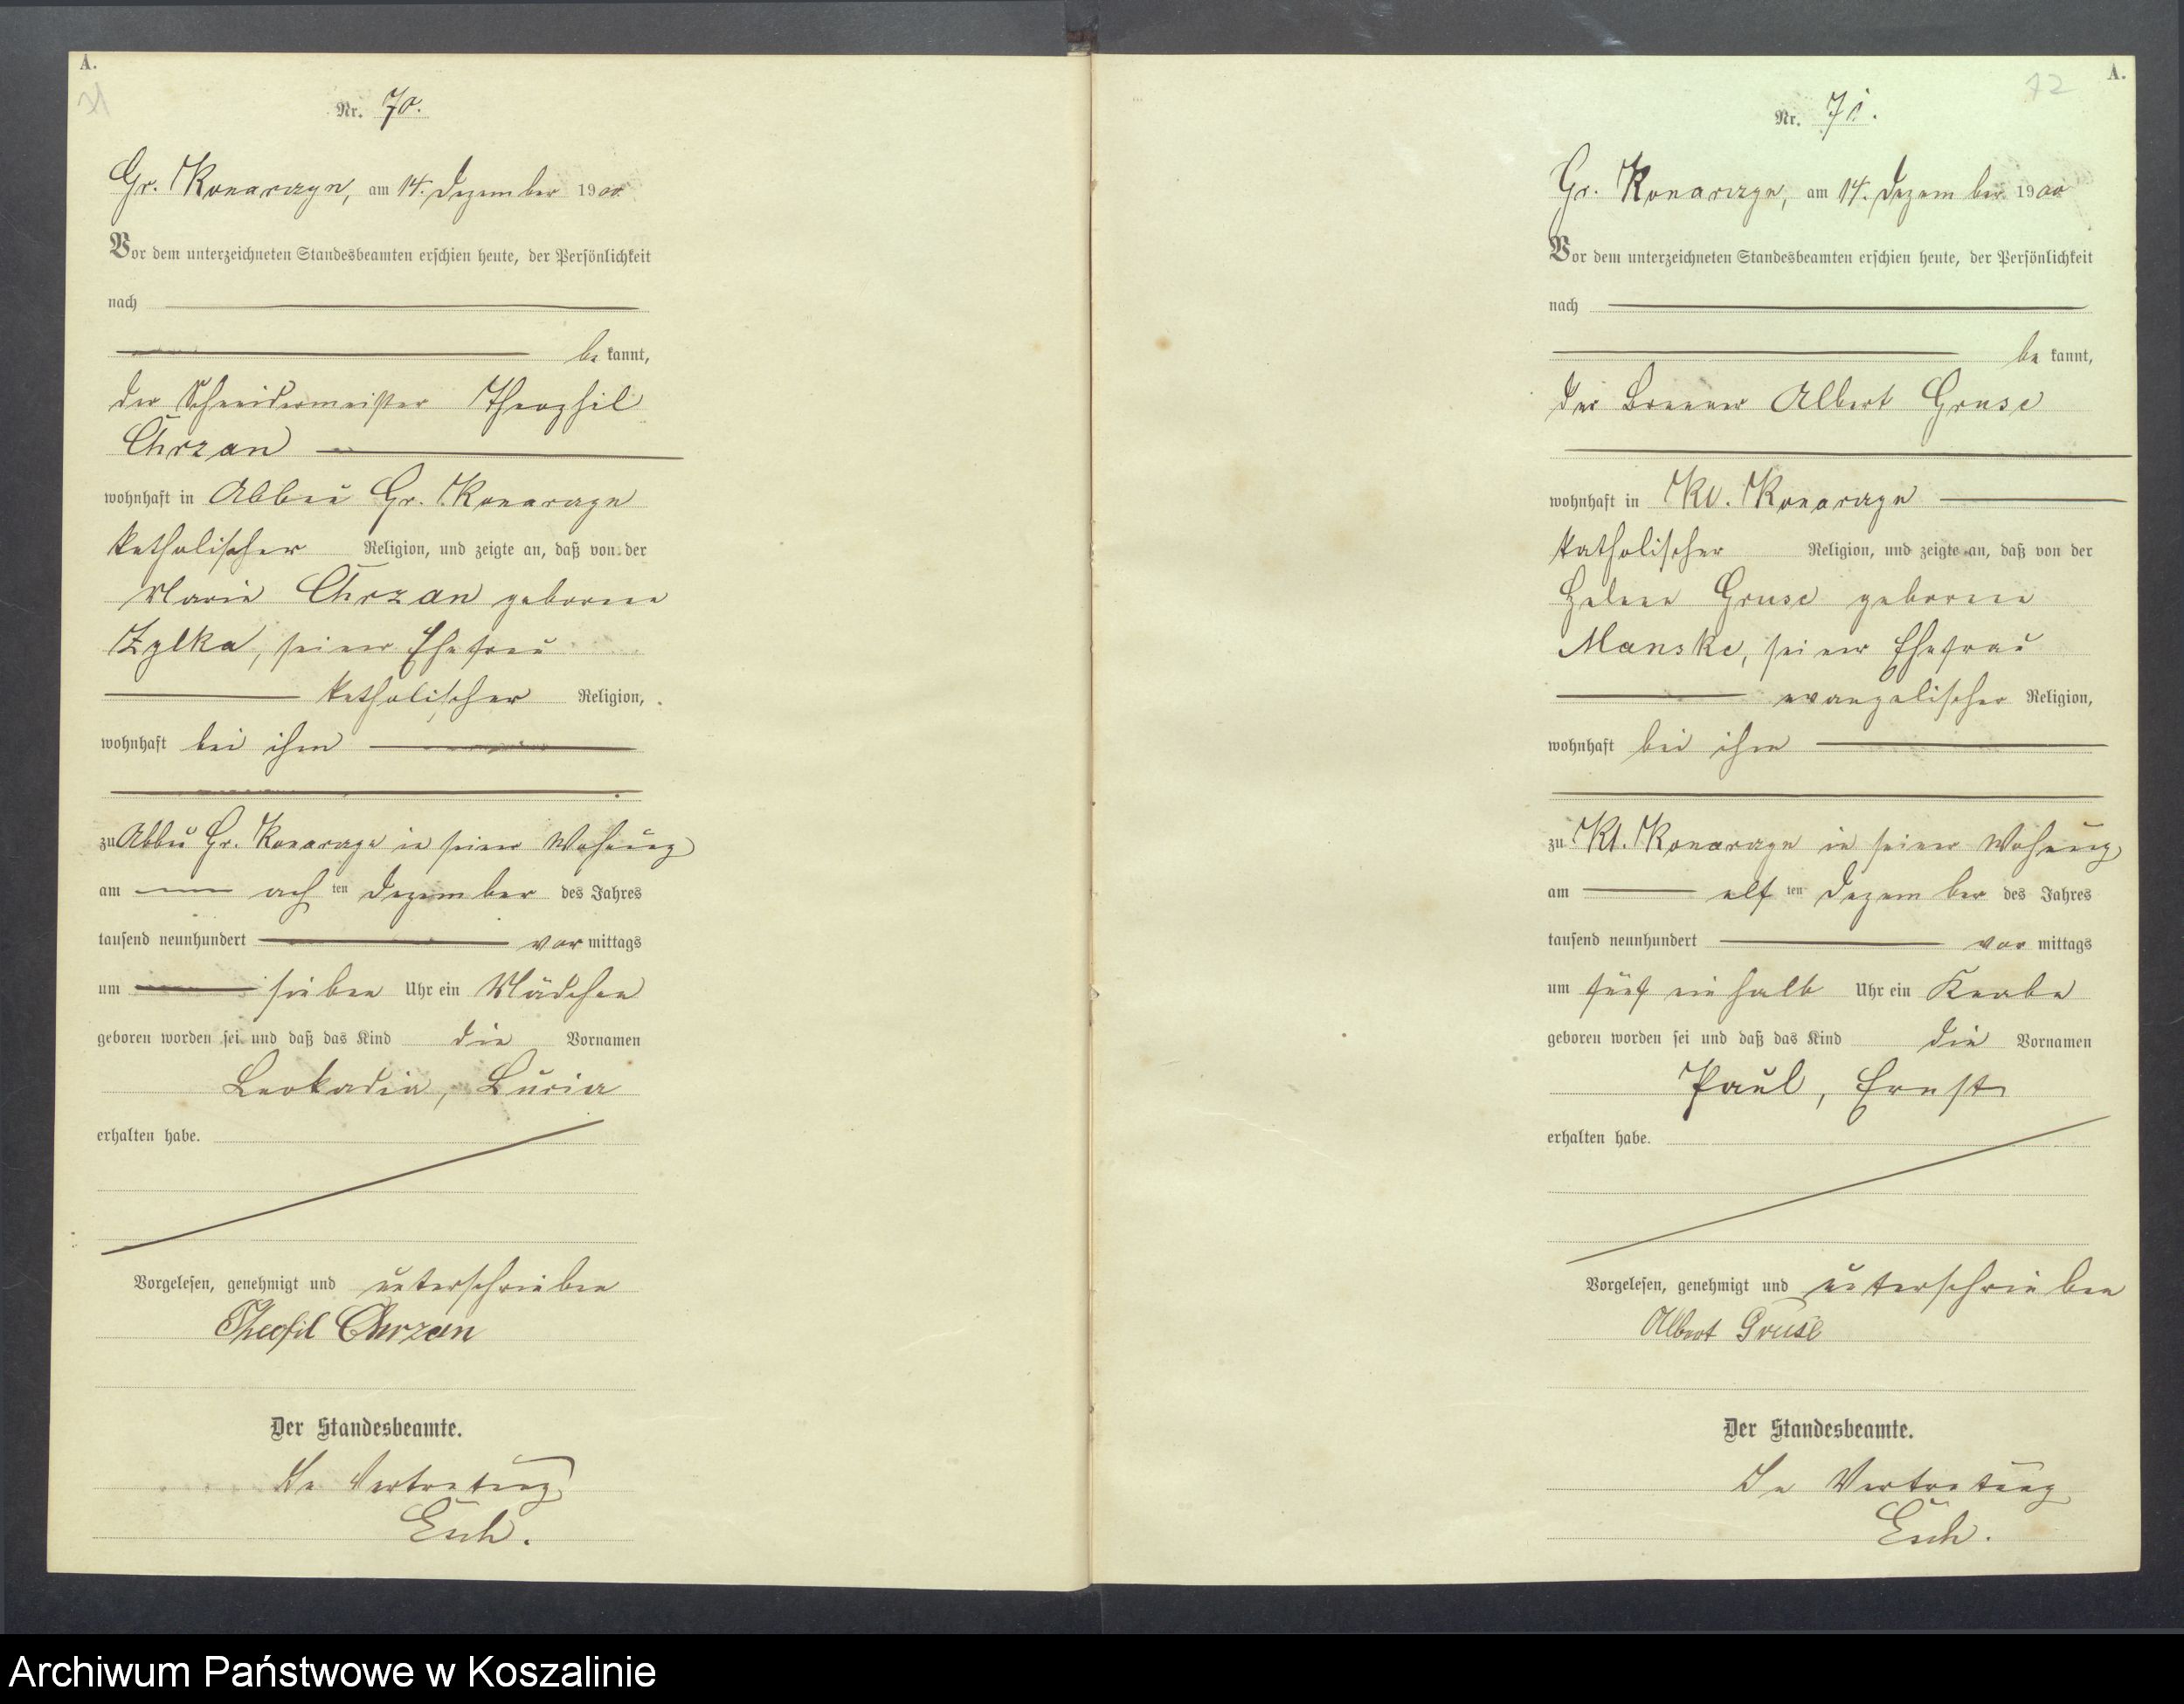 A.
Nr. 70.
Gr. Konarczyn, am 14. Dezember 1900
Vor dem unterzeichneten Standesbeamten erschien heute, der Persönlichkeit
nach
be kannt,
der Schneidermeister Theophil
Chrzan
wohnhaft in Abbau Gr. Konarczyn
katholischer Religion, und zeigte an, daß von der
Marie Chrzan geborene
Zylka, seiner Ehefrau
katholischer Religion,
wohnhaft bei ihm
zu Abbau Gr. Konarczyn in seiner Wohnung
am achten Dezember des Jahres
tausend neunhundert vor mittags
um sieben Uhr ein Mädchen
geboren worden sei und daß das Kind die Vornamen
Leokadia, Lucia
erhalten habe.
Vorgelesen, genehmigt und unterschrieben
Theofil Chrzan
Der Standesbeamte.
In Vertretung
Esch.
A.
72
Nr. 71.
Gr. Konarczyn, am 14. Dezember 1900
Vor dem unterzeichneten Standesbeamten erschien heute, der Persönlichkeit
nach
be kannt,
der Brenner Albert Gruse
wohnhaft in Kl. Konarczyn
katholischer Religion, und zeigte an, daß von der
Helene Gruse geborene
Manske, seiner Ehefrau
evangelischer Religion,
wohnhaft bei ihm
zu Kl. Konarczyn in seiner Wohnung
am elften Dezember des Jahres
tausend neunhundert vor mittags
um fünf ein halb Uhr ein Knabe
geboren worden sei und daß das Kind die Vornamen
Paul, Ernst
erhalten habe.
Vorgelesen, genehmigt und unterschrieben
Albert Gruse
Der Standesbeamte.
In Vertretung
Esch.
Archiwum Państwowe w Koszalinie